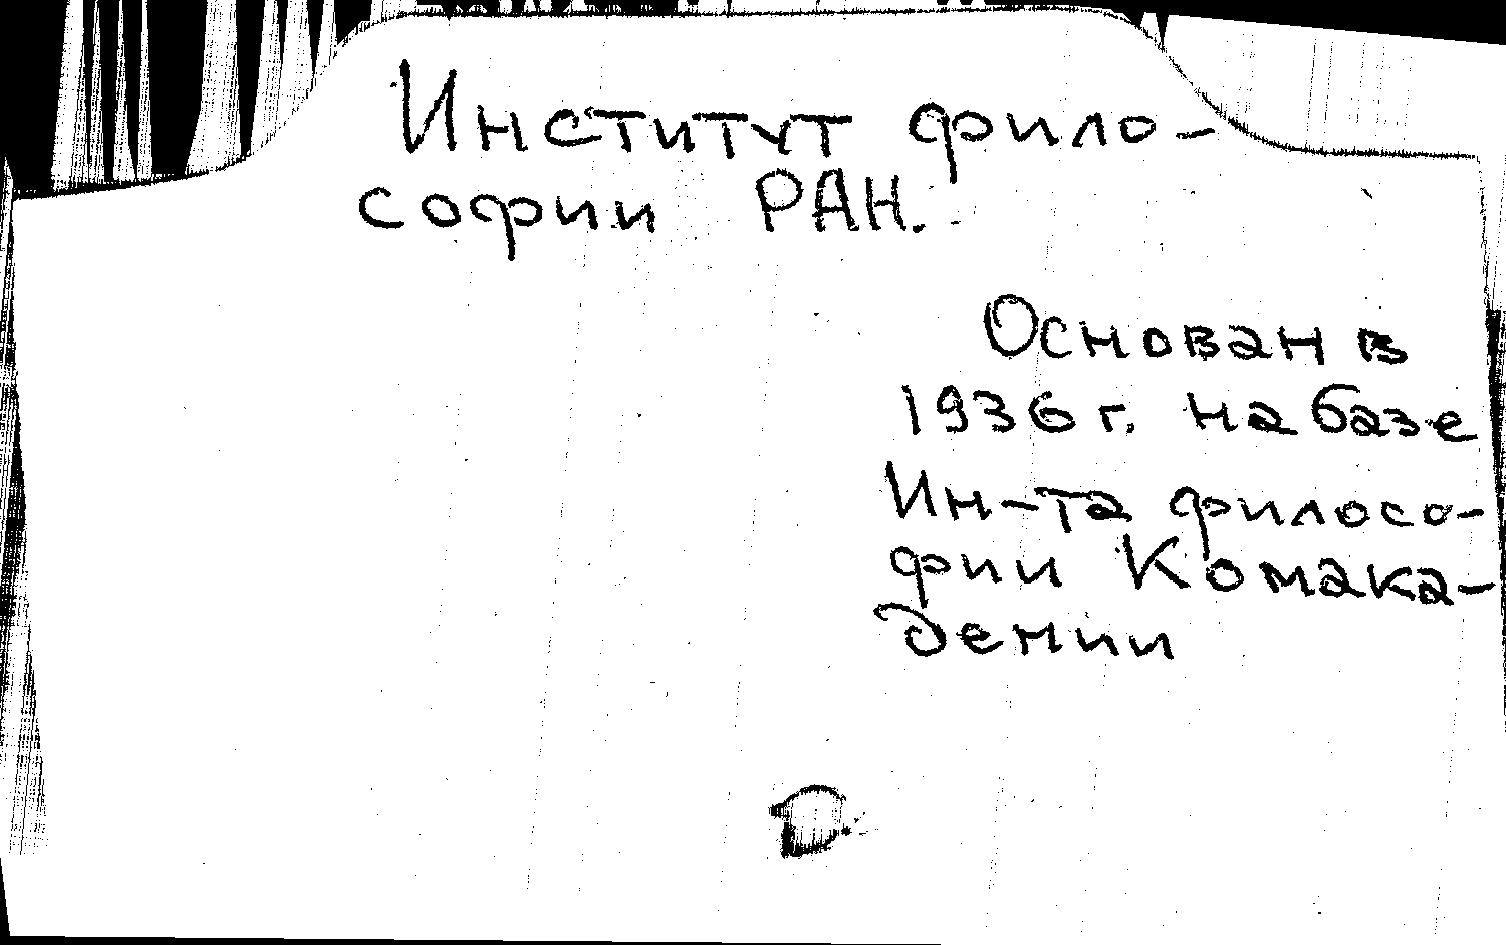 Институт фило-
софии РАН.
Основан в
1936 г. на базе
Ин-та филосо-
фии Комака-
демии